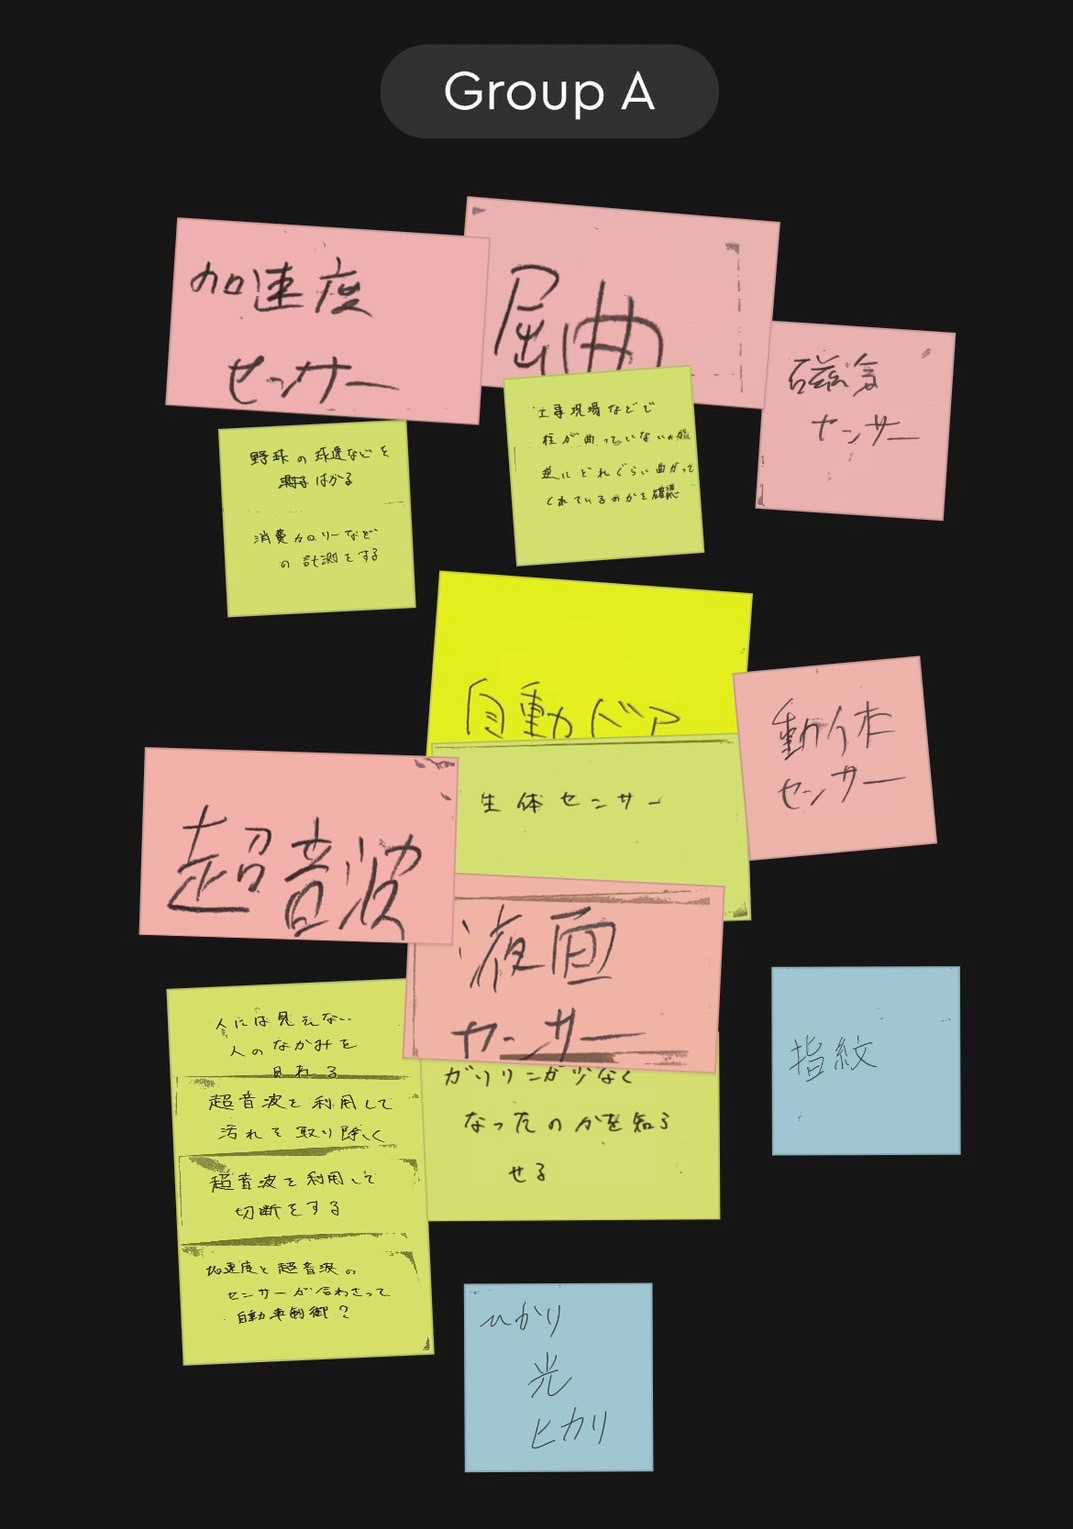 Group A
加速度
センサー
屈曲
磁気
センサー
野球の球速などを
はかる
消費カロリーなど
の計測をする
工事現場などで
柱が曲っていないか
逆にどれぐらい曲がって
くれているのかを確認
自動ドア
生体センサー
動作
センサー
超音波
液面
センサー
人には見えない
人のなかみを
見れる
超音波を利用して
汚れを取り除く
超音波を利用して
切断をする
加速度と超音波の
センサーが合わさって
自動車制御?
ガソリンが少なく
なったのかを知ら
せる
指紋
ひかり
光
ヒカリ